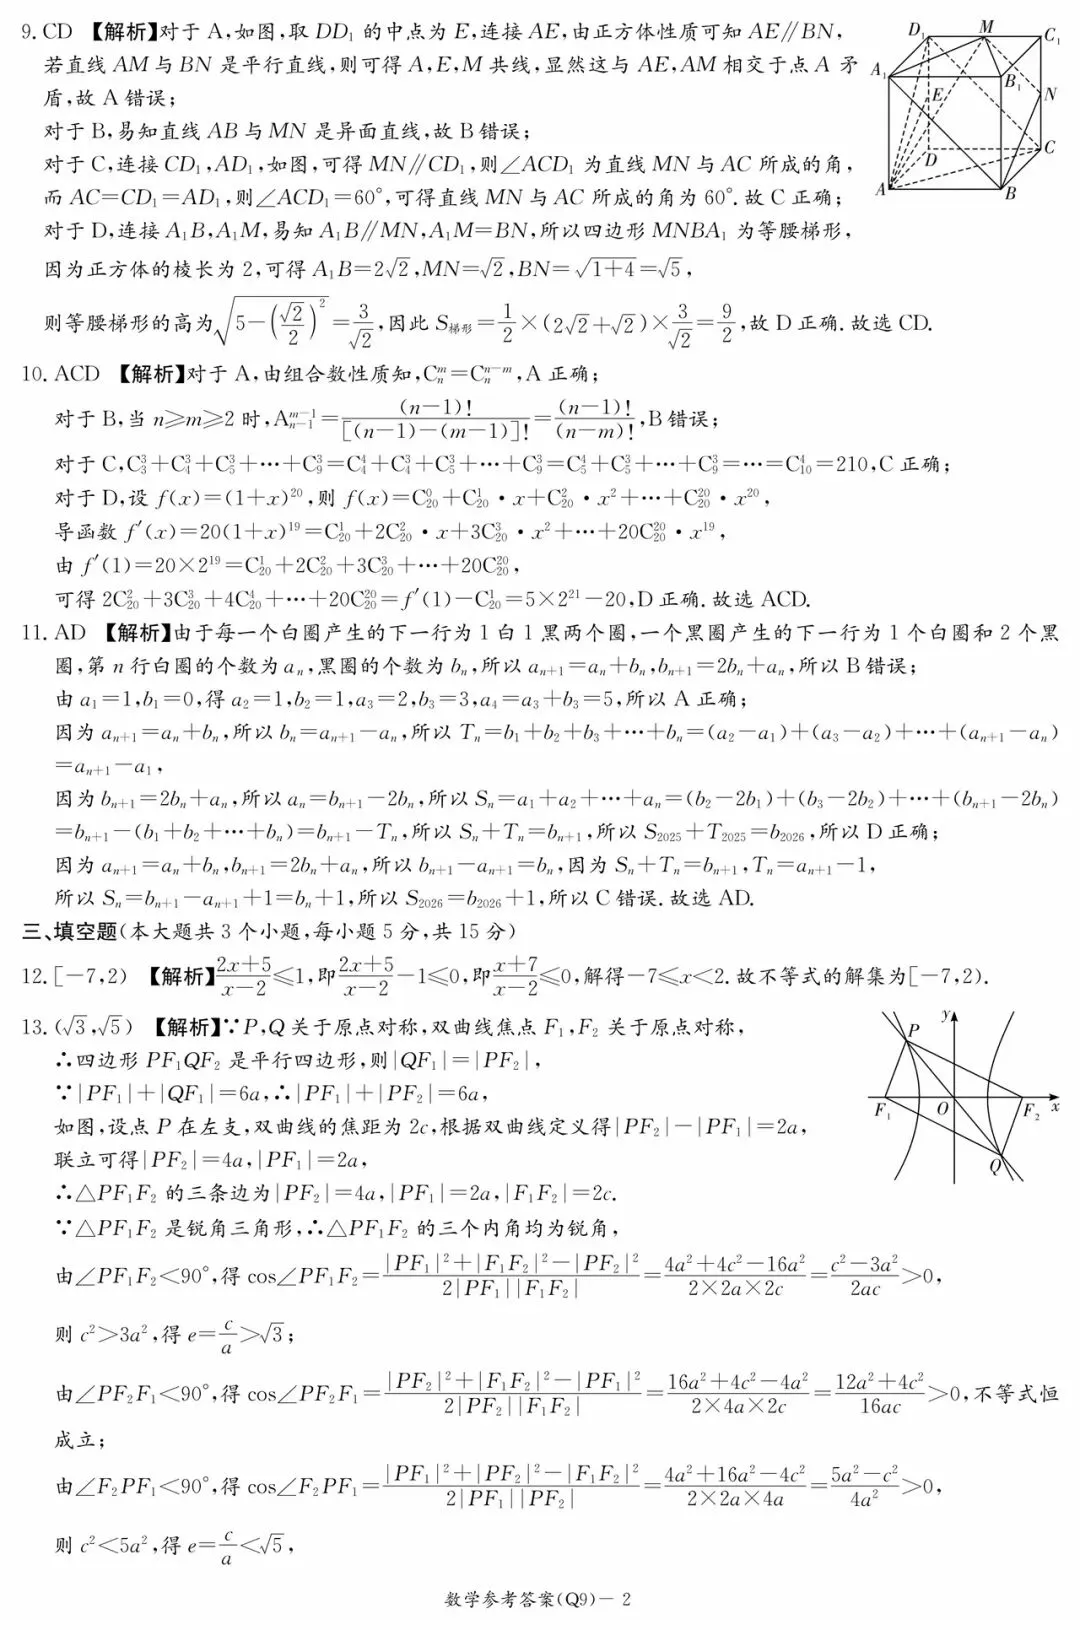 9. CD 【解析】对于 A,如图,取 DD₁ 的中点为 E,连接 AE,由正方体性质可知 AE∥BN,
若直线 AM 与 BN 是平行直线,则可得 A,E,M 共线,显然这与 AE,AM 相交于点 A 矛
盾,故 A 错误;
对于 B,易知直线 AB 与 MN 是异面直线,故 B 错误;
对于 C,连接 CD₁,AD₁,如图,可得 MN∥CD₁,则∠ACD₁ 为直线 MN 与 AC 所成的角,
而 AC=CD₁=AD₁,则∠ACD₁=60°,可得直线 MN 与 AC 所成的角为 60°.故 C 正确;
对于 D,连接 A₁B,A₁M,易知 A₁B∥MN,A₁M=BN,所以四边形 MNBA₁ 为等腰梯形,
因为正方体的棱长为 2,可得 A₁B=2√2,MN=√2,BN=√(1+4)=√5,
则等腰梯形的高为√(5-(√2/2)²)=3/√2,因此 S梯形=1/2×(2√2+√2)×3/√2=9/2,故 D 正确.故选 CD.
D₁ M C₁
A₁ B₁
E N
D C
A B
10. ACD 【解析】对于 A,由组合数性质知,Cₙᵐ=Cₙⁿ⁻ᵐ,A 正确;
对于 B,当 n≥m≥2 时,Aₙ₋₁ᵐ⁻¹=(n-1)!/[(n-1)-(m-1)]!=(n-1)!/(n-m)!,B 错误;
对于 C,C₃³+C₄³+C₅³+…+C₉³=C₄⁴+C₄³+C₅³+…+C₉³=C₅⁴+C₅³+…+C₉³=…=C₁₀⁴=210,C 正确;
对于 D,设 f(x)=(1+x)²⁰,则 f(x)=C₂₀⁰+C₂₀¹·x+C₂₀²·x²+…+C₂₀²⁰·x²⁰,
导函数 f′(x)=20(1+x)¹⁹=C₂₀¹+2C₂₀²·x+3C₂₀³·x²+…+20C₂₀²⁰·x¹⁹,
由 f′(1)=20×2¹⁹=C₂₀¹+2C₂₀²+3C₂₀³+…+20C₂₀²⁰,
可得 2C₂₀²+3C₂₀³+4C₂₀⁴+…+20C₂₀²⁰=f′(1)-C₂₀¹=5×2²¹-20,D 正确.故选 ACD.
11. AD 【解析】由于每一个白圈产生的下一行为 1 白 1 黑两个圈,一个黑圈产生的下一行为 1 个白圈和 2 个黑
圈,第 n 行白圈的个数为 aₙ,黑圈的个数为 bₙ,所以 aₙ₊₁=aₙ+bₙ,bₙ₊₁=2bₙ+aₙ,所以 B 错误;
由 a₁=1,b₁=0,得 a₂=1,b₂=1,a₃=2,b₃=3,a₄=a₃+b₃=5,所以 A 正确;
因为 aₙ₊₁=aₙ+bₙ,所以 bₙ=aₙ₊₁-aₙ,所以 Tₙ=b₁+b₂+b₃+…+bₙ=(a₂-a₁)+(a₃-a₂)+…+(aₙ₊₁-aₙ)
=aₙ₊₁-a₁,
因为 bₙ₊₁=2bₙ+aₙ,所以 aₙ=bₙ₊₁-2bₙ,所以 Sₙ=a₁+a₂+…+aₙ=(b₂-2b₁)+(b₃-2b₂)+…+(bₙ₊₁-2bₙ)
=bₙ₊₁-(b₁+b₂+…+bₙ)=bₙ₊₁-Tₙ,所以 Sₙ+Tₙ=bₙ₊₁,所以 S₂₀₂₅+T₂₀₂₅=b₂₀₂₆,所以 D 正确;
因为 aₙ₊₁=aₙ+bₙ,bₙ₊₁=2bₙ+aₙ,所以 bₙ₊₁-aₙ₊₁=bₙ,因为 Sₙ+Tₙ=bₙ₊₁,Tₙ=aₙ₊₁-1,
所以 Sₙ=bₙ₊₁-aₙ₊₁+1=bₙ+1,所以 S₂₀₂₆=b₂₀₂₆+1,所以 C 错误.故选 AD.
三、填空题(本大题共 3 个小题,每小题 5 分,共 15 分)
12. [-7,2) 【解析】(2x+5)/(x-2)≤1,即(2x+5)/(x-2)-1≤0,即(x+7)/(x-2)≤0,解得-7≤x<2.故不等式的解集为[-7,2).
13. (√3,√5) 【解析】∵P,Q 关于原点对称,双曲线焦点 F₁,F₂ 关于原点对称,
∴四边形 PF₁QF₂ 是平行四边形,则|QF₁|=|PF₂|,
∵|PF₁|+|QF₁|=6a,∴|PF₁|+|PF₂|=6a,
如图,设点 P 在左支,双曲线的焦距为 2c,根据双曲线定义得|PF₂|-|PF₁|=2a,
联立可得|PF₂|=4a,|PF₁|=2a,
∴△PF₁F₂ 的三条边为|PF₂|=4a,|PF₁|=2a,|F₁F₂|=2c.
∵△PF₁F₂ 是锐角三角形,∴△PF₁F₂ 的三个内角均为锐角,
y
P
F₁ O F₂ x
Q
由∠PF₁F₂<90°,得 cos∠PF₁F₂=(|PF₁|²+|F₁F₂|²-|PF₂|²)/(2|PF₁||F₁F₂|)=(4a²+4c²-16a²)/(2×2a×2c)=(c²-3a²)/(2ac)>0,
则 c²>3a²,得 e=c/a>√3;
由∠PF₂F₁<90°,得 cos∠PF₂F₁=(|PF₂|²+|F₁F₂|²-|PF₁|²)/(2|PF₂||F₁F₂|)=(16a²+4c²-4a²)/(2×4a×2c)=(12a²+4c²)/(16ac)>0,不等式恒
成立;
由∠F₂PF₁<90°,得 cos∠F₂PF₁=(|PF₁|²+|PF₂|²-|F₁F₂|²)/(2|PF₁||PF₂|)=(4a²+16a²-4c²)/(2×2a×4a)=(5a²-c²)/(4a²)>0,
则 c²<5a²,得 e=c/a<√5,
数学参考答案(Q9)- 2